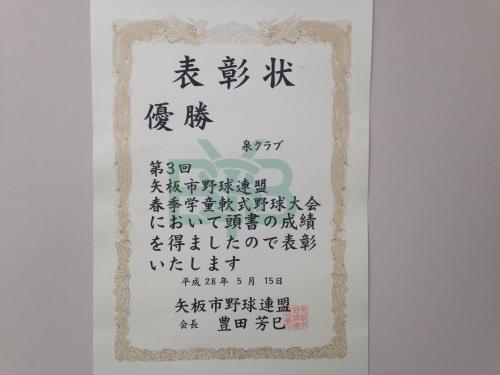 表彰状
優勝
泉クラブ
第3回
矢板市野球連盟
春季学童軟式野球大会
において頭書の成績
を得ましたので表彰
いたします
平成28年5月15日
矢板市野球連盟
会長 豊田芳巳